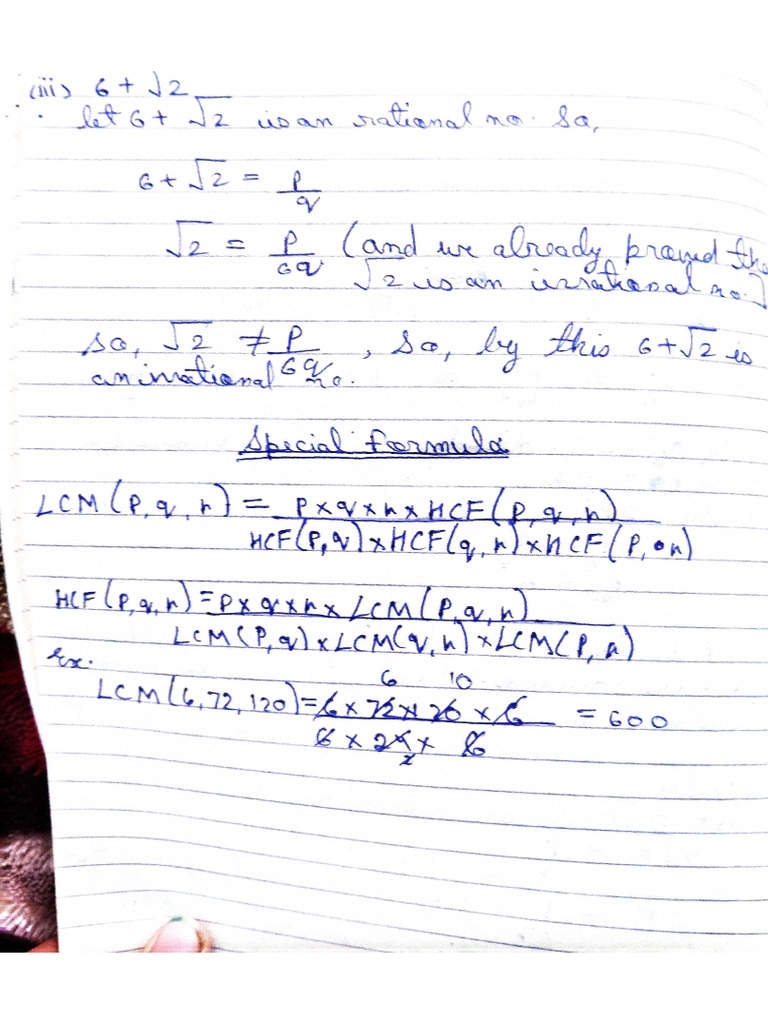 (iii) 6 + √2
let 6 + √2 is an rational no. So,
6 + √2 = p/q
√2 = p/6q (and we already proved the
√2 is an irrational no.]
so, √2 ≠ p/6q, so, by this 6+√2 is
an irrational no.
Special formula
LCM(P,q,r) = P×q×r×HCF(P,q,r)
HCF(P,q)×HCF(q,r)×HCF(P,r)
HCF(P,q,r) = P×q×r×LCM(P,q,r)
LCM(P,q)×LCM(q,r)×LCM(P,r)
Ex.
6 10
LCM(6,72,120) = 6×72×120×6 = 600
6×24×6
2